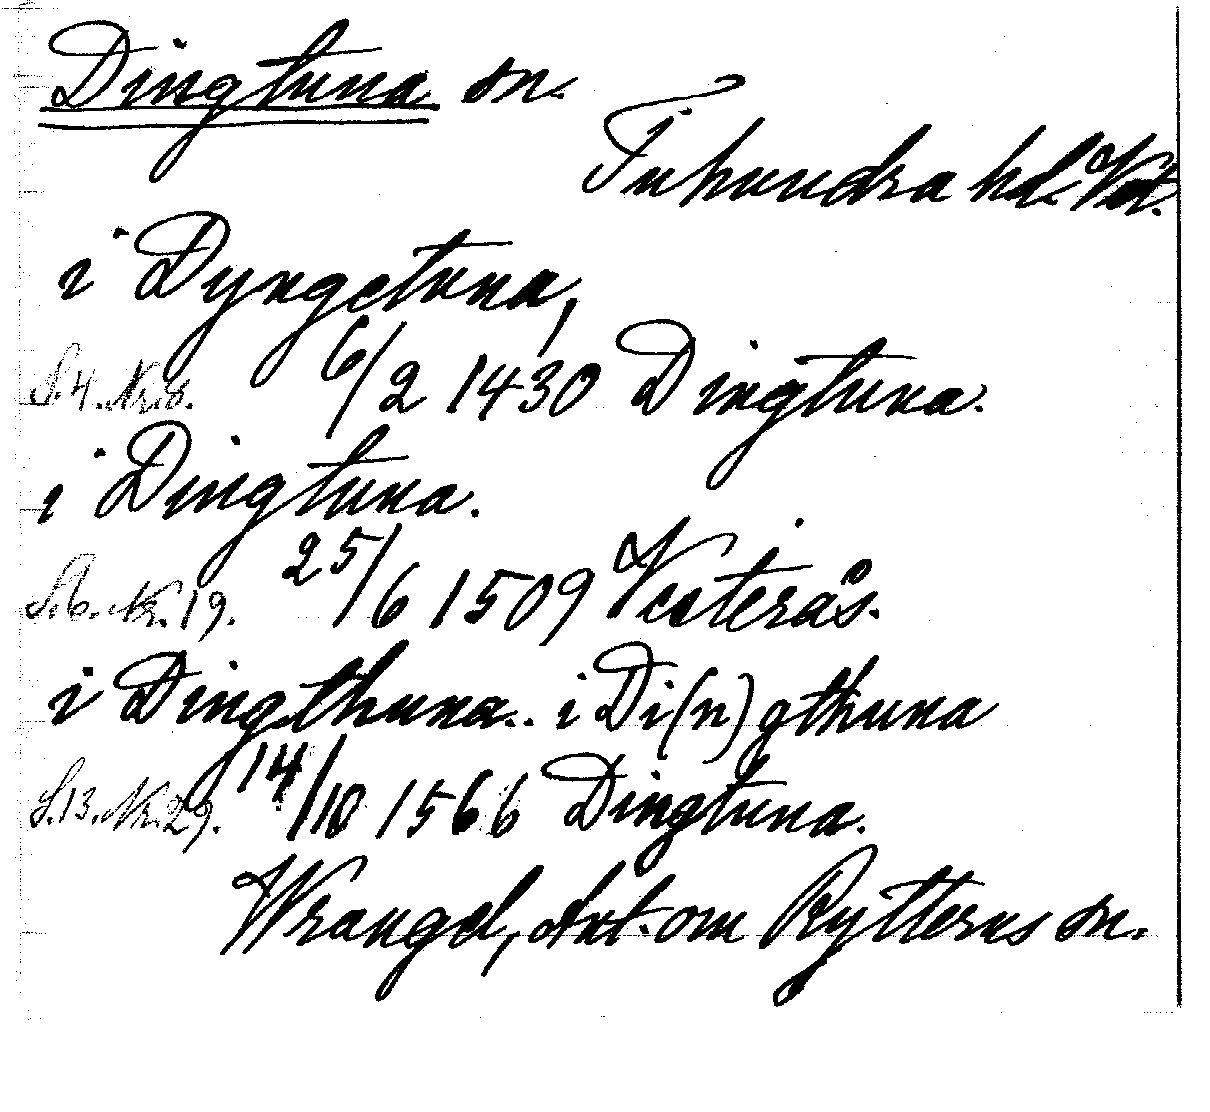 Dingtuna sn.
Tuhundra hd. Vstm.
i Dyngetuna,
S.4. Nr.8. 6/2 1430 Dingtuna.
i Dingtuna.
S.6. Nr.19. 25/6 1509 Vesterås.
i Dingthuna.. i Di(n)gthuna
S.13. Nr.29. 14/10 1566 Dingtuna.
Wrangel, Ant. om Rytterns sn.